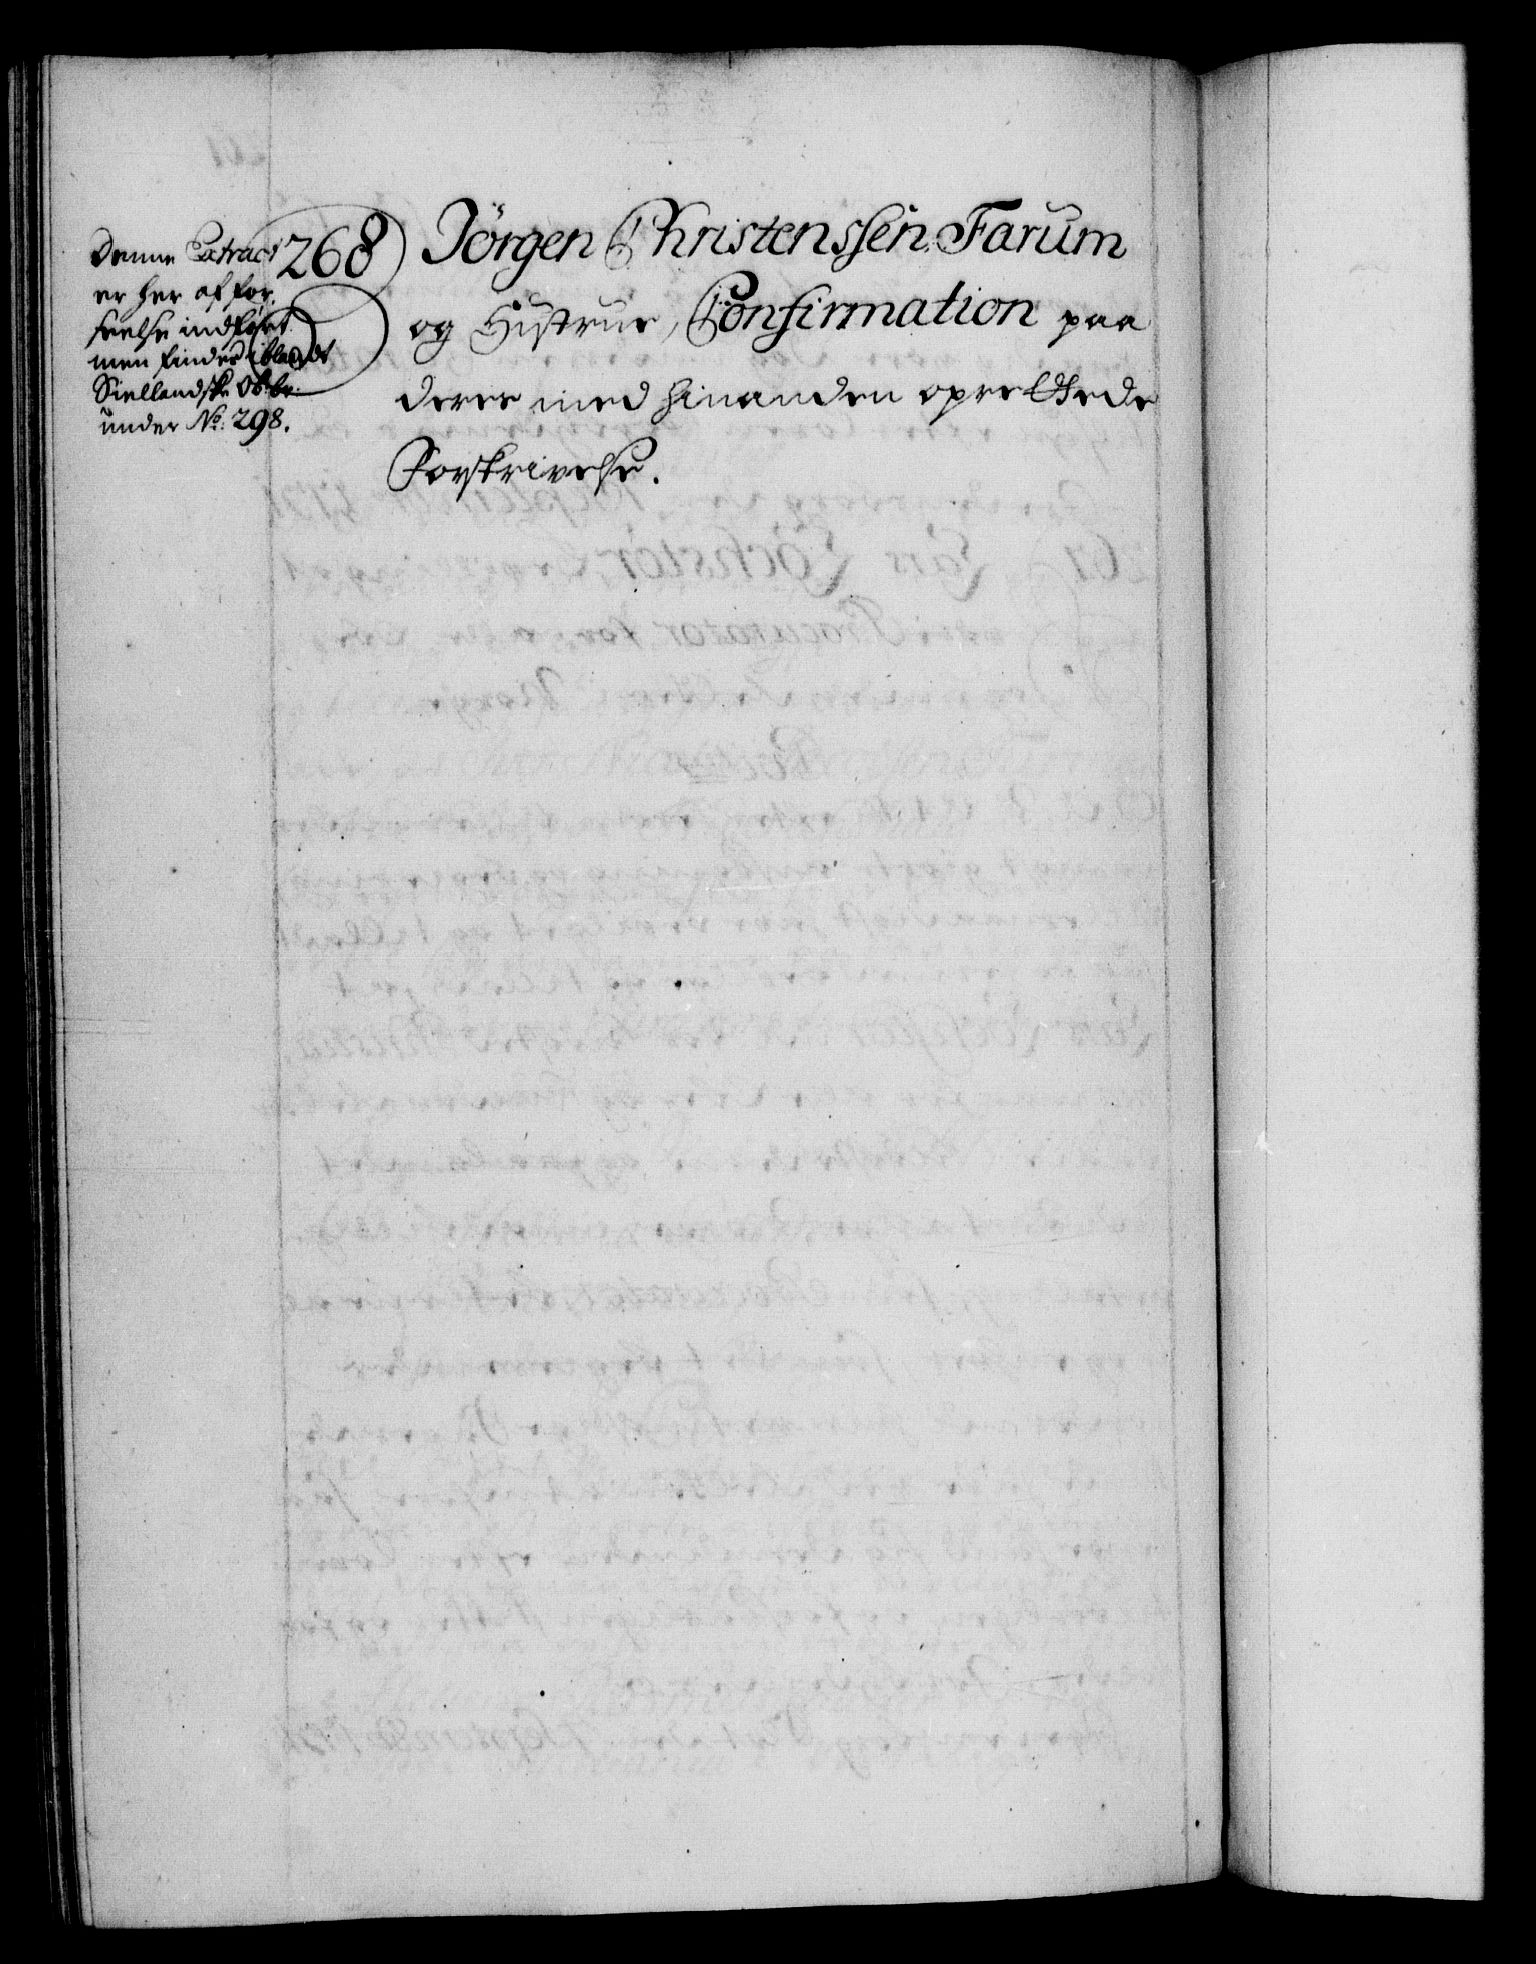 Denne Extract
er her af for,
seelse indfört
men findes iblandt
Siellandske
under No: 298.
268 Jörgen Christenssen Farum
og Hustrue, Confirmation paa
deres med hinanden oprettede
Forskrivelse.